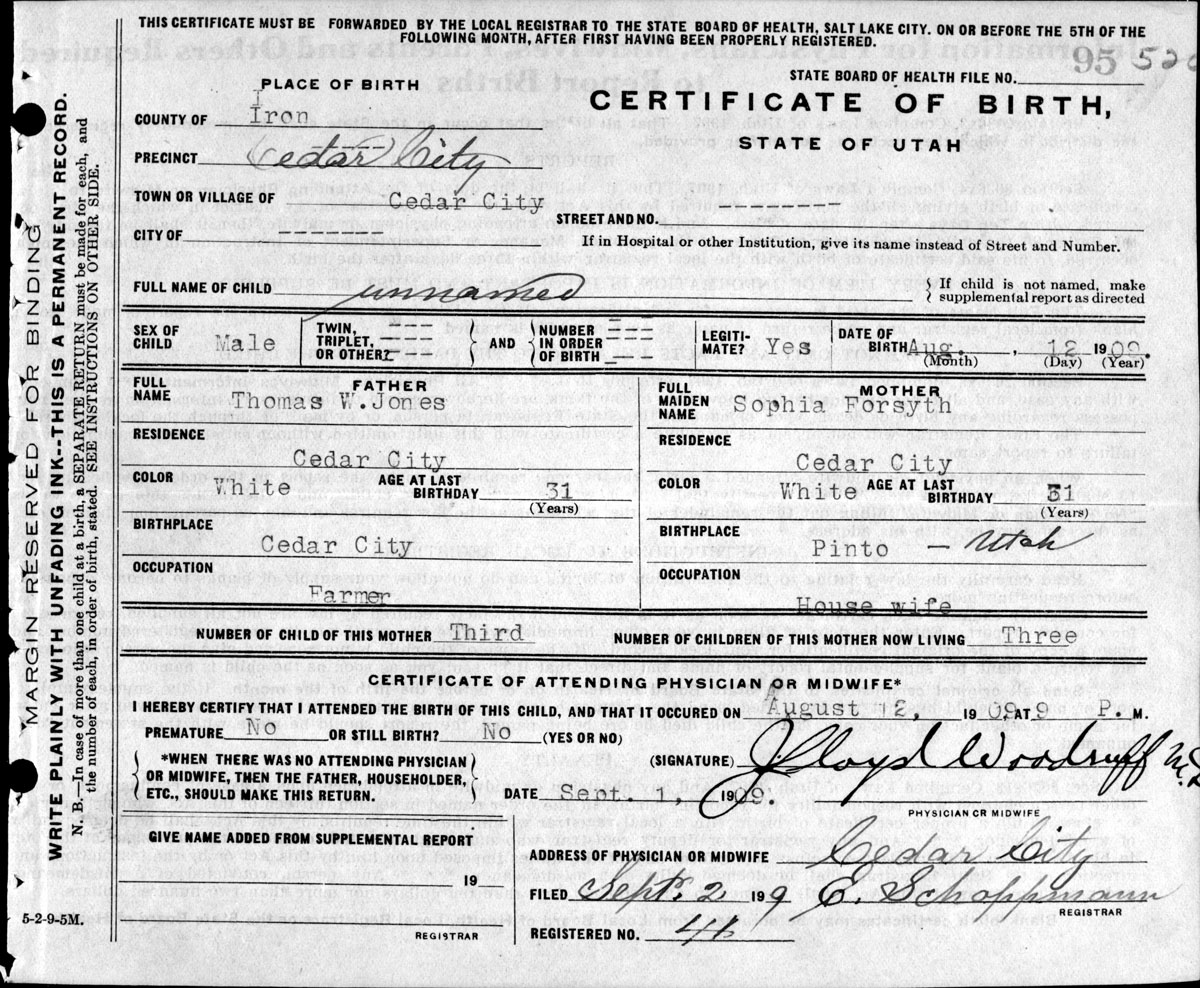 THIS CERTIFICATE MUST BE FORWARDED BY THE LOCAL REGISTRAR TO THE STATE BOARD OF HEALTH, SALT LAKE CITY. ON OR BEFORE THE 5TH OF THE
FOLLOWING MONTH, AFTER FIRST HAVING BEEN PROPERLY REGISTERED.
STATE BOARD OF HEALTH FILE NO. 95
PLACE OF BIRTH
CERTIFICATE OF BIRTH,
STATE OF UTAH
COUNTY OF Iron
PRECINCT Cedar City
TOWN OR VILLAGE OF Cedar City
STREET AND NO. -----
CITY OF -----
If in Hospital or other Institution, give its name instead of Street and Number.
FULL NAME OF CHILD unnamed
If child is not named, make
supplemental report as directed
SEX OF CHILD Male
TWIN, TRIPLET, OR OTHER?
AND
NUMBER IN ORDER OF BIRTH
LEGITI-MATE? Yes
DATE OF BIRTH Aug. 12 1909.
(Month) (Day) (Year)
FATHER
FULL NAME Thomas W. Jones
RESIDENCE
Cedar City
COLOR White AGE AT LAST BIRTHDAY 31
(Years)
BIRTHPLACE
Cedar City
OCCUPATION
Farmer
MOTHER
FULL MAIDEN NAME Sophia Forsyth
RESIDENCE
Cedar City
COLOR White AGE AT LAST BIRTHDAY 31
(Years)
BIRTHPLACE
Pinto - Utah
OCCUPATION
House wife
NUMBER OF CHILD OF THIS MOTHER Third NUMBER OF CHILDREN OF THIS MOTHER NOW LIVING Three
CERTIFICATE OF ATTENDING PHYSICIAN OR MIDWIFE*
I HEREBY CERTIFY THAT I ATTENDED THE BIRTH OF THIS CHILD, AND THAT IT OCCURED ON August 12, 1909 AT 9 P. M.
PREMATURE No OR STILL BIRTH? No (YES OR NO)
*WHEN THERE WAS NO ATTENDING PHYSICIAN
OR MIDWIFE, THEN THE FATHER, HOUSEHOLDER,
ETC., SHOULD MAKE THIS RETURN.
(SIGNATURE) J Lloyd Woodruff M.D.
DATE Sept. 1, 1909.
PHYSICIAN OR MIDWIFE
GIVE NAME ADDED FROM SUPPLEMENTAL REPORT
19
REGISTRAR
ADDRESS OF PHYSICIAN OR MIDWIFE Cedar City
FILED Sept. 2 199 E. Schoppmann
REGISTRAR
REGISTERED NO.
5-2-9-5M.
MARGIN RESERVED FOR BINDING
WRITE PLAINLY WITH UNFADING INK--THIS IS A PERMANENT RECORD.
N. B.—In case of more than one child at a birth, a SEPARATE RETURN must be made for each, and
the number of each, in order of birth, stated. SEE INSTRUCTIONS ON OTHER SIDE.